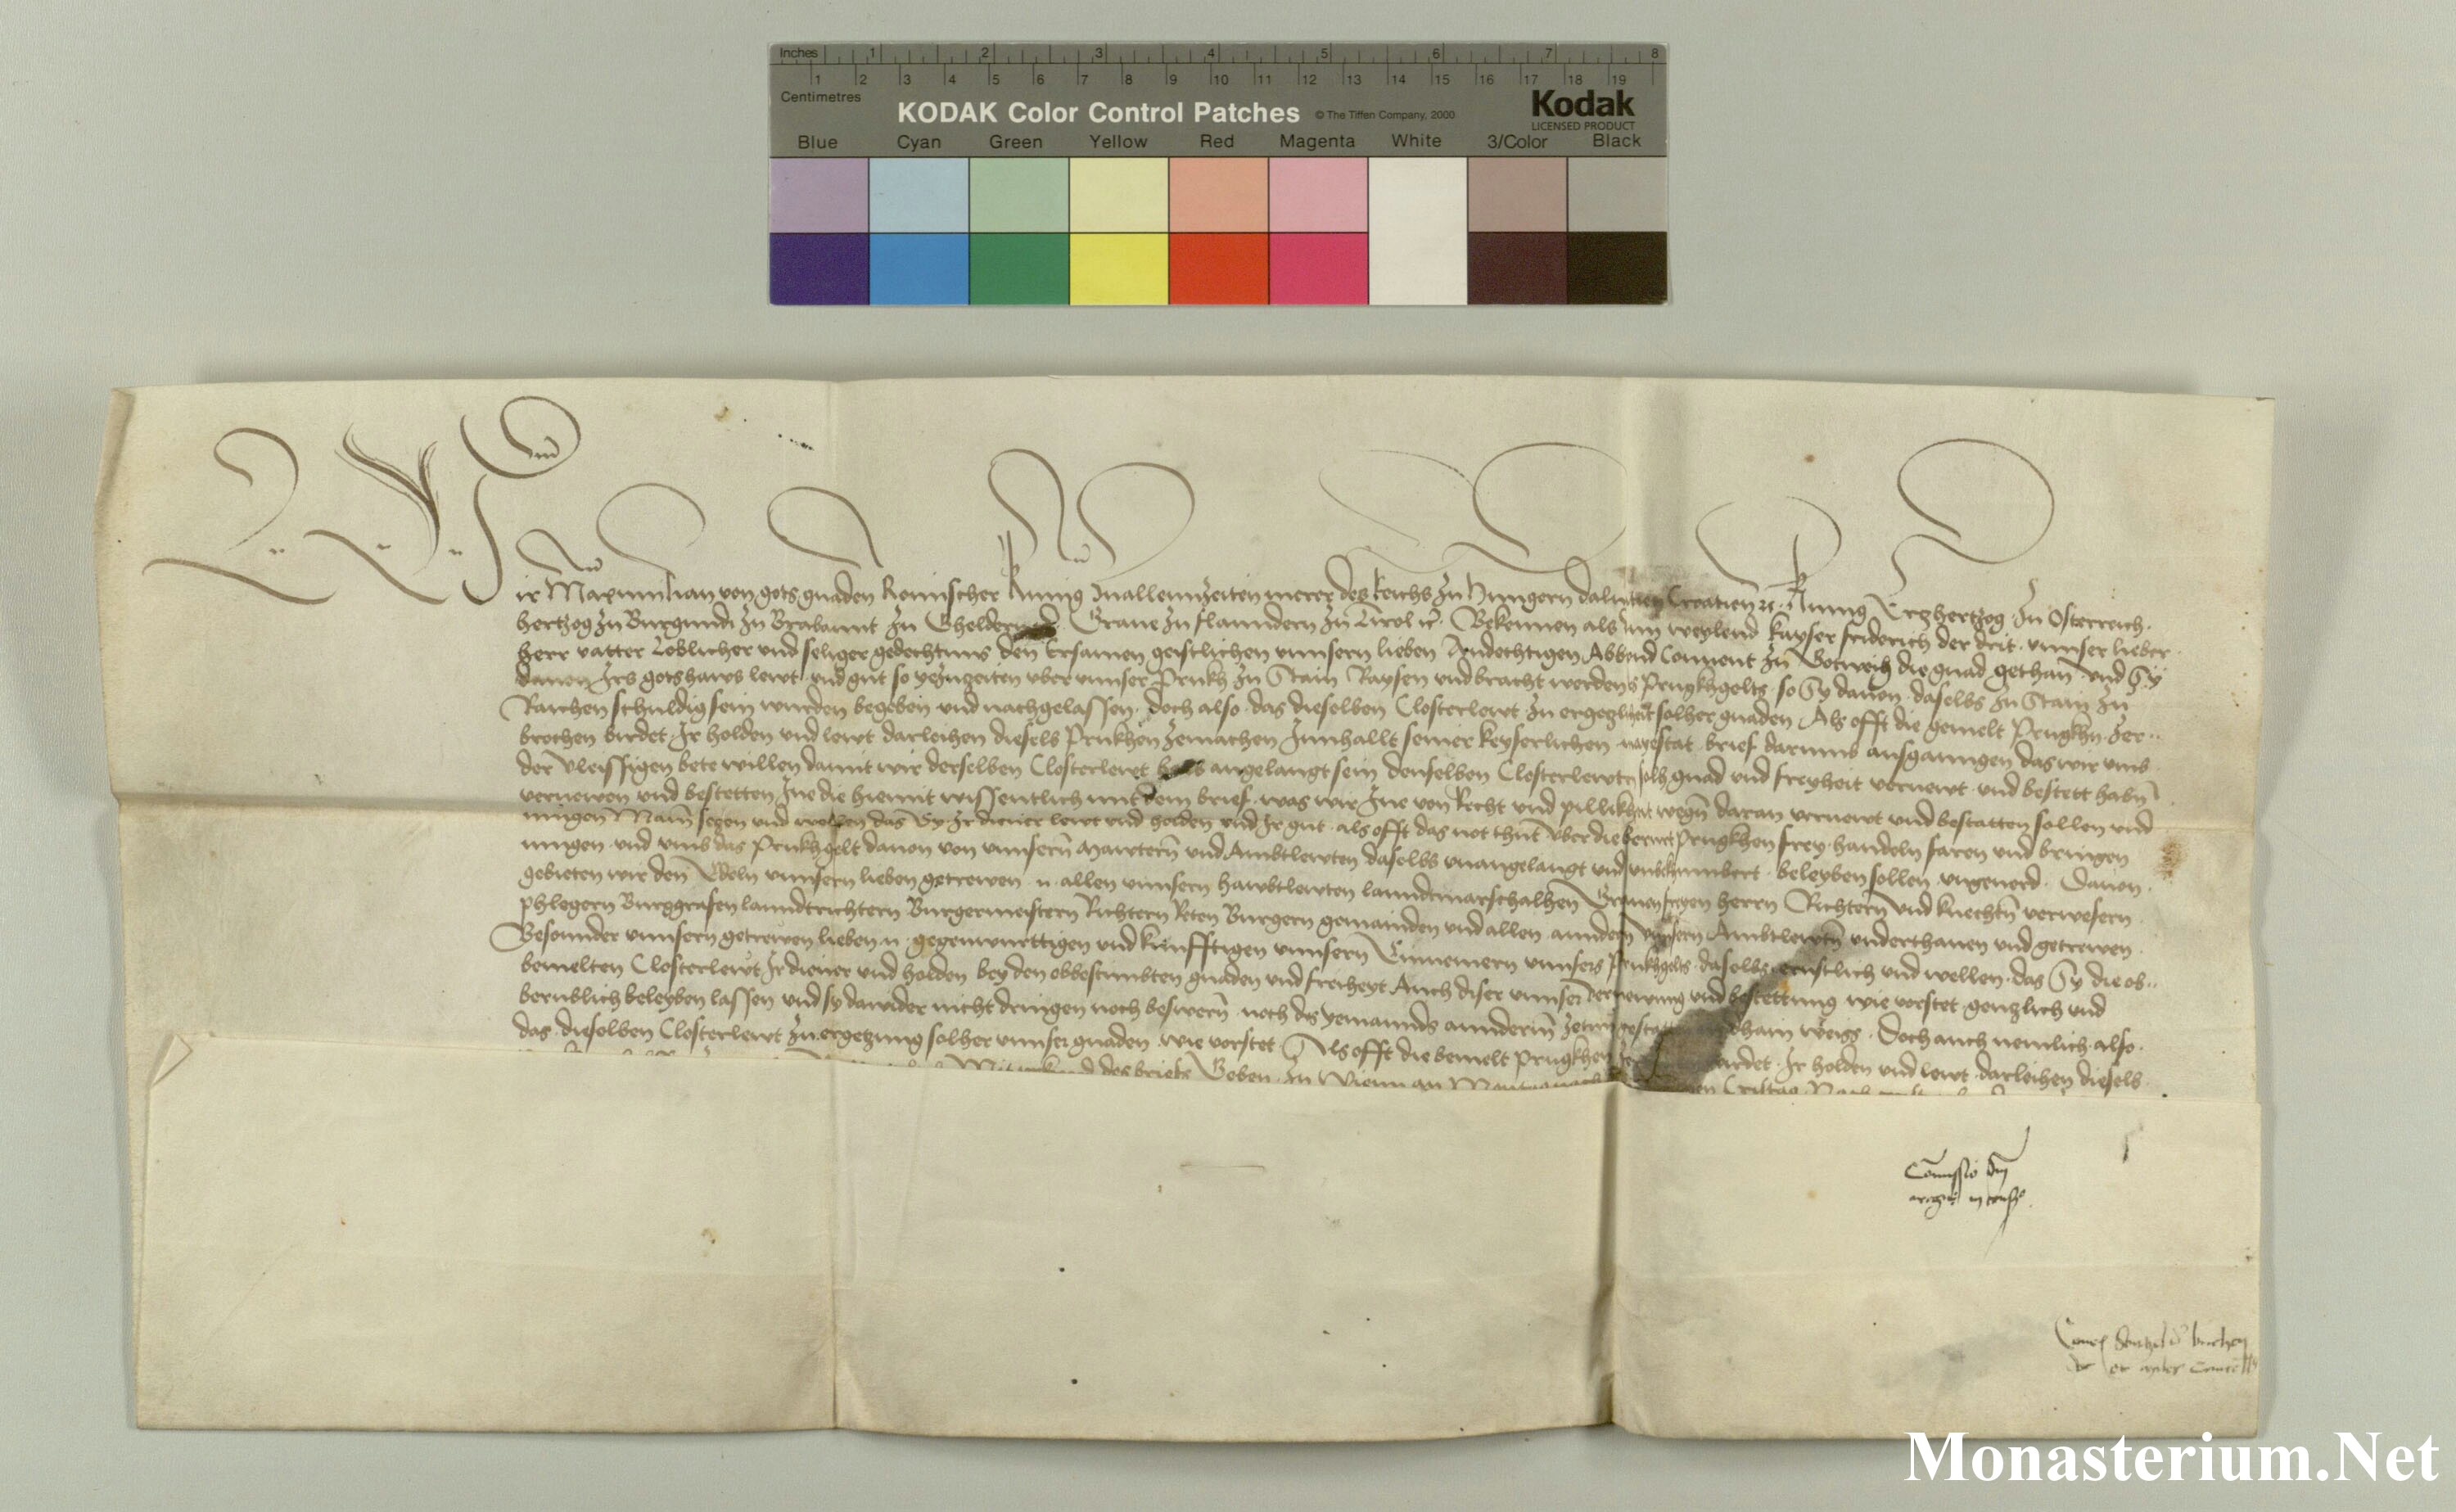 Inches 1 2 3 4 5 6 7 8
1 2 3 4 5 6 7 8 9 10 11 12 13 14 15 16 17 18 19
Centimetres
KODAK Color Control Patches © The Tiffen Company, 2000 Kodak
LICENSED PRODUCT
Blue Cyan Green Yellow Red Magenta White 3/Color Black
Wir Maximilian von gots gnaden Romischer Kunig zuallennzeiten merer des Reichs zu Hungern dalmatien Croatien Kunig Ertzhertzog zu Osterreich
hertzog zu Burgundi zu Brabannt zu Gheldern Graue zu flanndern zu Tirol Bekennen als weylend kayser friderich der drit vnnser lieber
herr vatter loblicher vnd seliger gedechtnus den Ersamen geistlichen vnnsern lieben Anndechtigen Abbt vnd Conuent zu Gotweig die gnad gethan vnd Sy
dauon Irs gotshaws lewt vnd gut so ye zuzeiten vber vnnser Prukh zu Stain Raysen vnd bracht werden Prugkhgelts so Sy dauon daselbs zu Stain zu
Raichen schuldig sein wurden begeben vnd nachgelassen doch also das dieselben Closterlewt zu solher gnaden Als offt die gemelt Prugkhn zer
brochen wirdet Ir holden vnd lewt darleihen diesels Prukhen zemachen Innhallt seiner keyserlichen mayestat brief darumb ausganngen das wir vmb
der vleissigen bete willen damit wir derselben Closterlewt angelangt sein denselben Closterlewtn solh gnad vnd freyheit vernewt vnd bestett habn
vernewen vnd bestetten Ine die hiemit wissentlich mit dem brief was wir Ine von Recht vnd pillikhait wegn daran vernewt vnd bestatten sollen vnd
mugen Mainn setzen vnd wellen das Sy Ir diener lewt vnd holden vnd Ir gut als offt das not thut vber die berurt Prugkhen frey hanndeln faren vnd bringen
mugen vnd vmb das Prukhgelt dauon von vnnsern Mawtern vnd Ambtlewten daselbs vnangelangt vnd vnbekumbert beleyben sollen vngeuerd Dauon
gebieten wir den Edeln vnnsern lieben getrewen n allen vnnsern hawbtlewten lanndtmarschalhen Grauen freyen herrn Rittern vnd knechtn verwesern
phlegern Burggrafen lanndtrichtern Burgermeistern Richtern Reten Burgern gemainden vnd allen anndern vnnsern Ambtlewtn vnderthanen vnd getrewen
Besonnder vnnsern getrewen lieben n gegenwurttigen vnd kunfftigen vnnsern Einnemern vnnsers Prukhgelts daselbs ernstlich vnd wellen das Sy die ob
bemelten Closterlewt Ir diener vnd holden bey den obbestimbten gnaden vnd freiheyt Auch diser vnnser vernewung vnd bestettung wie vorstet genzlich vnd
berublich beleyben lassen vnd sy darwider nicht dringen noch beswern noch des yemannds annderm zetun gestatten dhain weiss Doch auch nemlich also
das dieselben Closterlewt zu ergetzung solher vnnser gnaden wie vorstet Als offt die bemelt Prugkhen wirdet Ir holden vnd lewt darleihen diesels
Mit vrkund des briefs Geben zu Wienn an
Comissio dni
regis in consio
Monasterium.Net